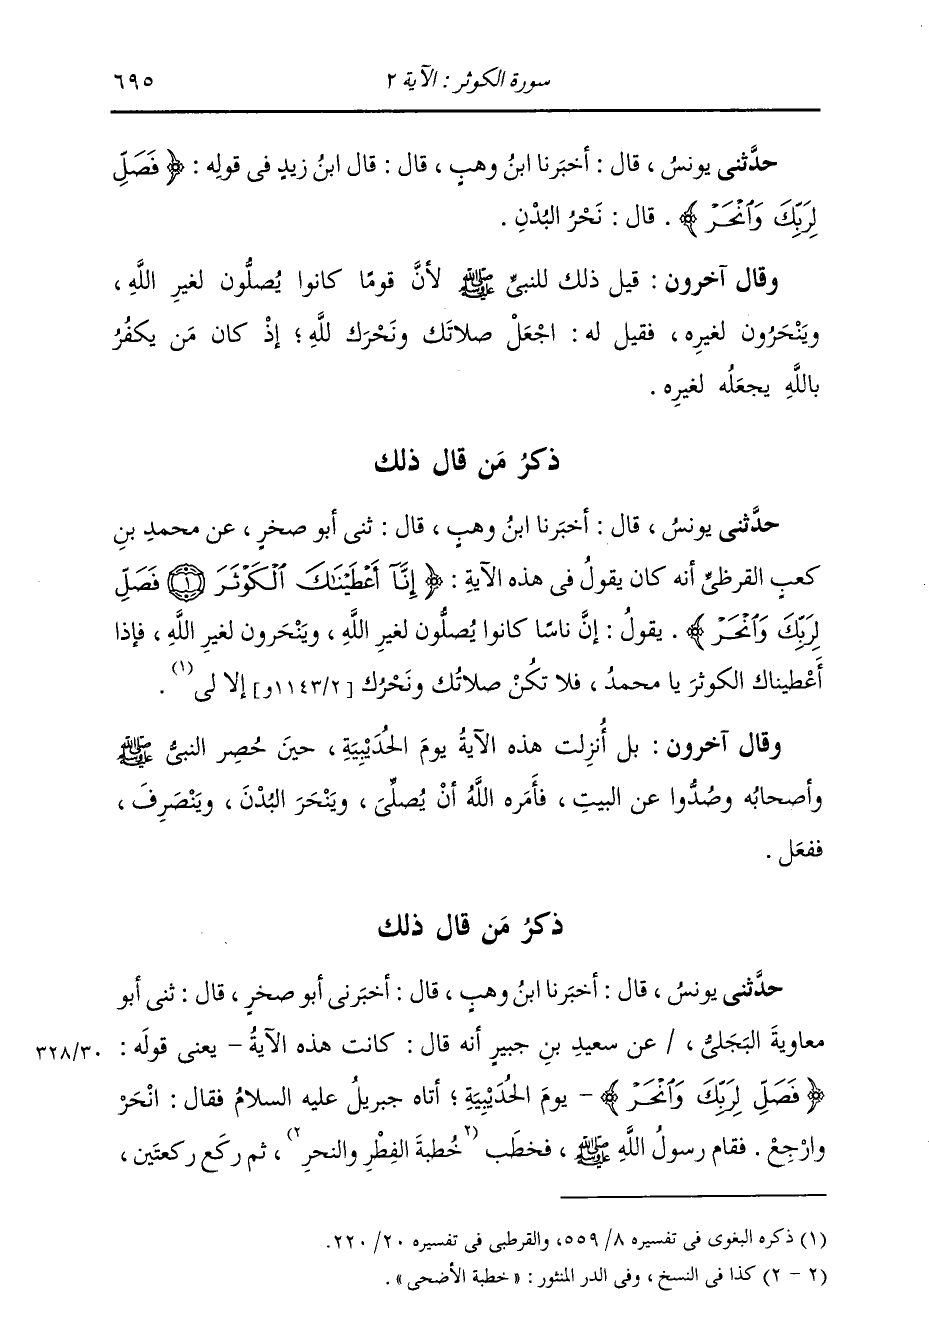 سورة الكوثر : الآية ٢ ٦٩٥
حدَّثنى يونسُ ، قال : أخبَرنا ابنُ وهبٍ ، قال : قال ابنُ زيدٍ فى قولِه : ﴿ فَصَلِّ
لِرَبِّكَ وَٱنْحَرْ ﴾ . قال : نَحْرُ البُدْنِ .
وقال آخرون : قيل ذلك للنبىِّ ﷺ لأنَّ قومًا كانوا يُصلُّون لغيرِ اللَّهِ ،
ويَنْحَرُون لغيرِه ، فقيل له : اجْعَلْ صلاتَك ونَحْرَك للَّهِ ؛ إذْ كان مَن يكفُرُ
باللَّهِ يجعَلُه لغيرِه .
ذكرُ مَن قال ذلك
حدَّثنى يونسُ ، قال : أخبَرنا ابنُ وهبٍ ، قال : ثنى أبو صخرٍ ، عن محمدِ بنِ
كعبٍ القرظىِّ أنه كان يقولُ فى هذه الآيةِ : ﴿ إِنَّآ أَعْطَيْنَٰكَ ٱلْكَوْثَرَ ۝١ فَصَلِّ
لِرَبِّكَ وَٱنْحَرْ ﴾ . يقولُ : إنَّ ناسًا كانوا يُصلُّون لغيرِ اللَّهِ ، ويَنْحَرون لغيرِ اللَّهِ ، فإذا
أَعْطيناك الكوثرَ يا محمدُ ، فلا تكُنْ صلاتُك ونَحْرُك [١١٤٣/٢و] إلا لى(١) .
وقال آخرون : بل أُنزِلت هذه الآيةُ يومَ الحُدَيْبِيَةِ ، حينَ حُصِر النبىُّ ﷺ
وأصحابُه وصُدُّوا عن البيتِ ، فأَمَره اللَّهُ أنْ يُصلِّىَ ، ويَنْحَرَ البُدْنَ ، ويَنْصَرِفَ ،
ففعَل .
ذكرُ مَن قال ذلك
حدَّثنى يونسُ ، قال : أخبَرنا ابنُ وهبٍ ، قال : أخبَرنى أبو صخرٍ ، قال : ثنى أبو
معاويةَ البَجَلىُّ ، / عن سعيدِ بنِ جبيرٍ أنه قال : كانت هذه الآيةُ – يعنى قولَه : ٣٢٨/٣٠
﴿ فَصَلِّ لِرَبِّكَ وَٱنْحَرْ ﴾ – يومَ الحُدَيْبِيَةِ ؛ أتاه جبريلُ عليه السلامُ فقال : انْحَرْ
وارْجِعْ . فقام رسولُ اللَّهِ ﷺ ، فخطَب (٢خُطبةَ الفِطْرِ والنحرِ٢) ، ثم ركَع ركعتَين ،
(١) ذكره البغوى فى تفسيره ٨/ ٥٥٩، والقرطبى فى تفسيره ٢٠/ ٢٢٠.
(٢ – ٢) كذا فى النسخ ، وفى الدر المنثور : « خطبة الأضحى » .